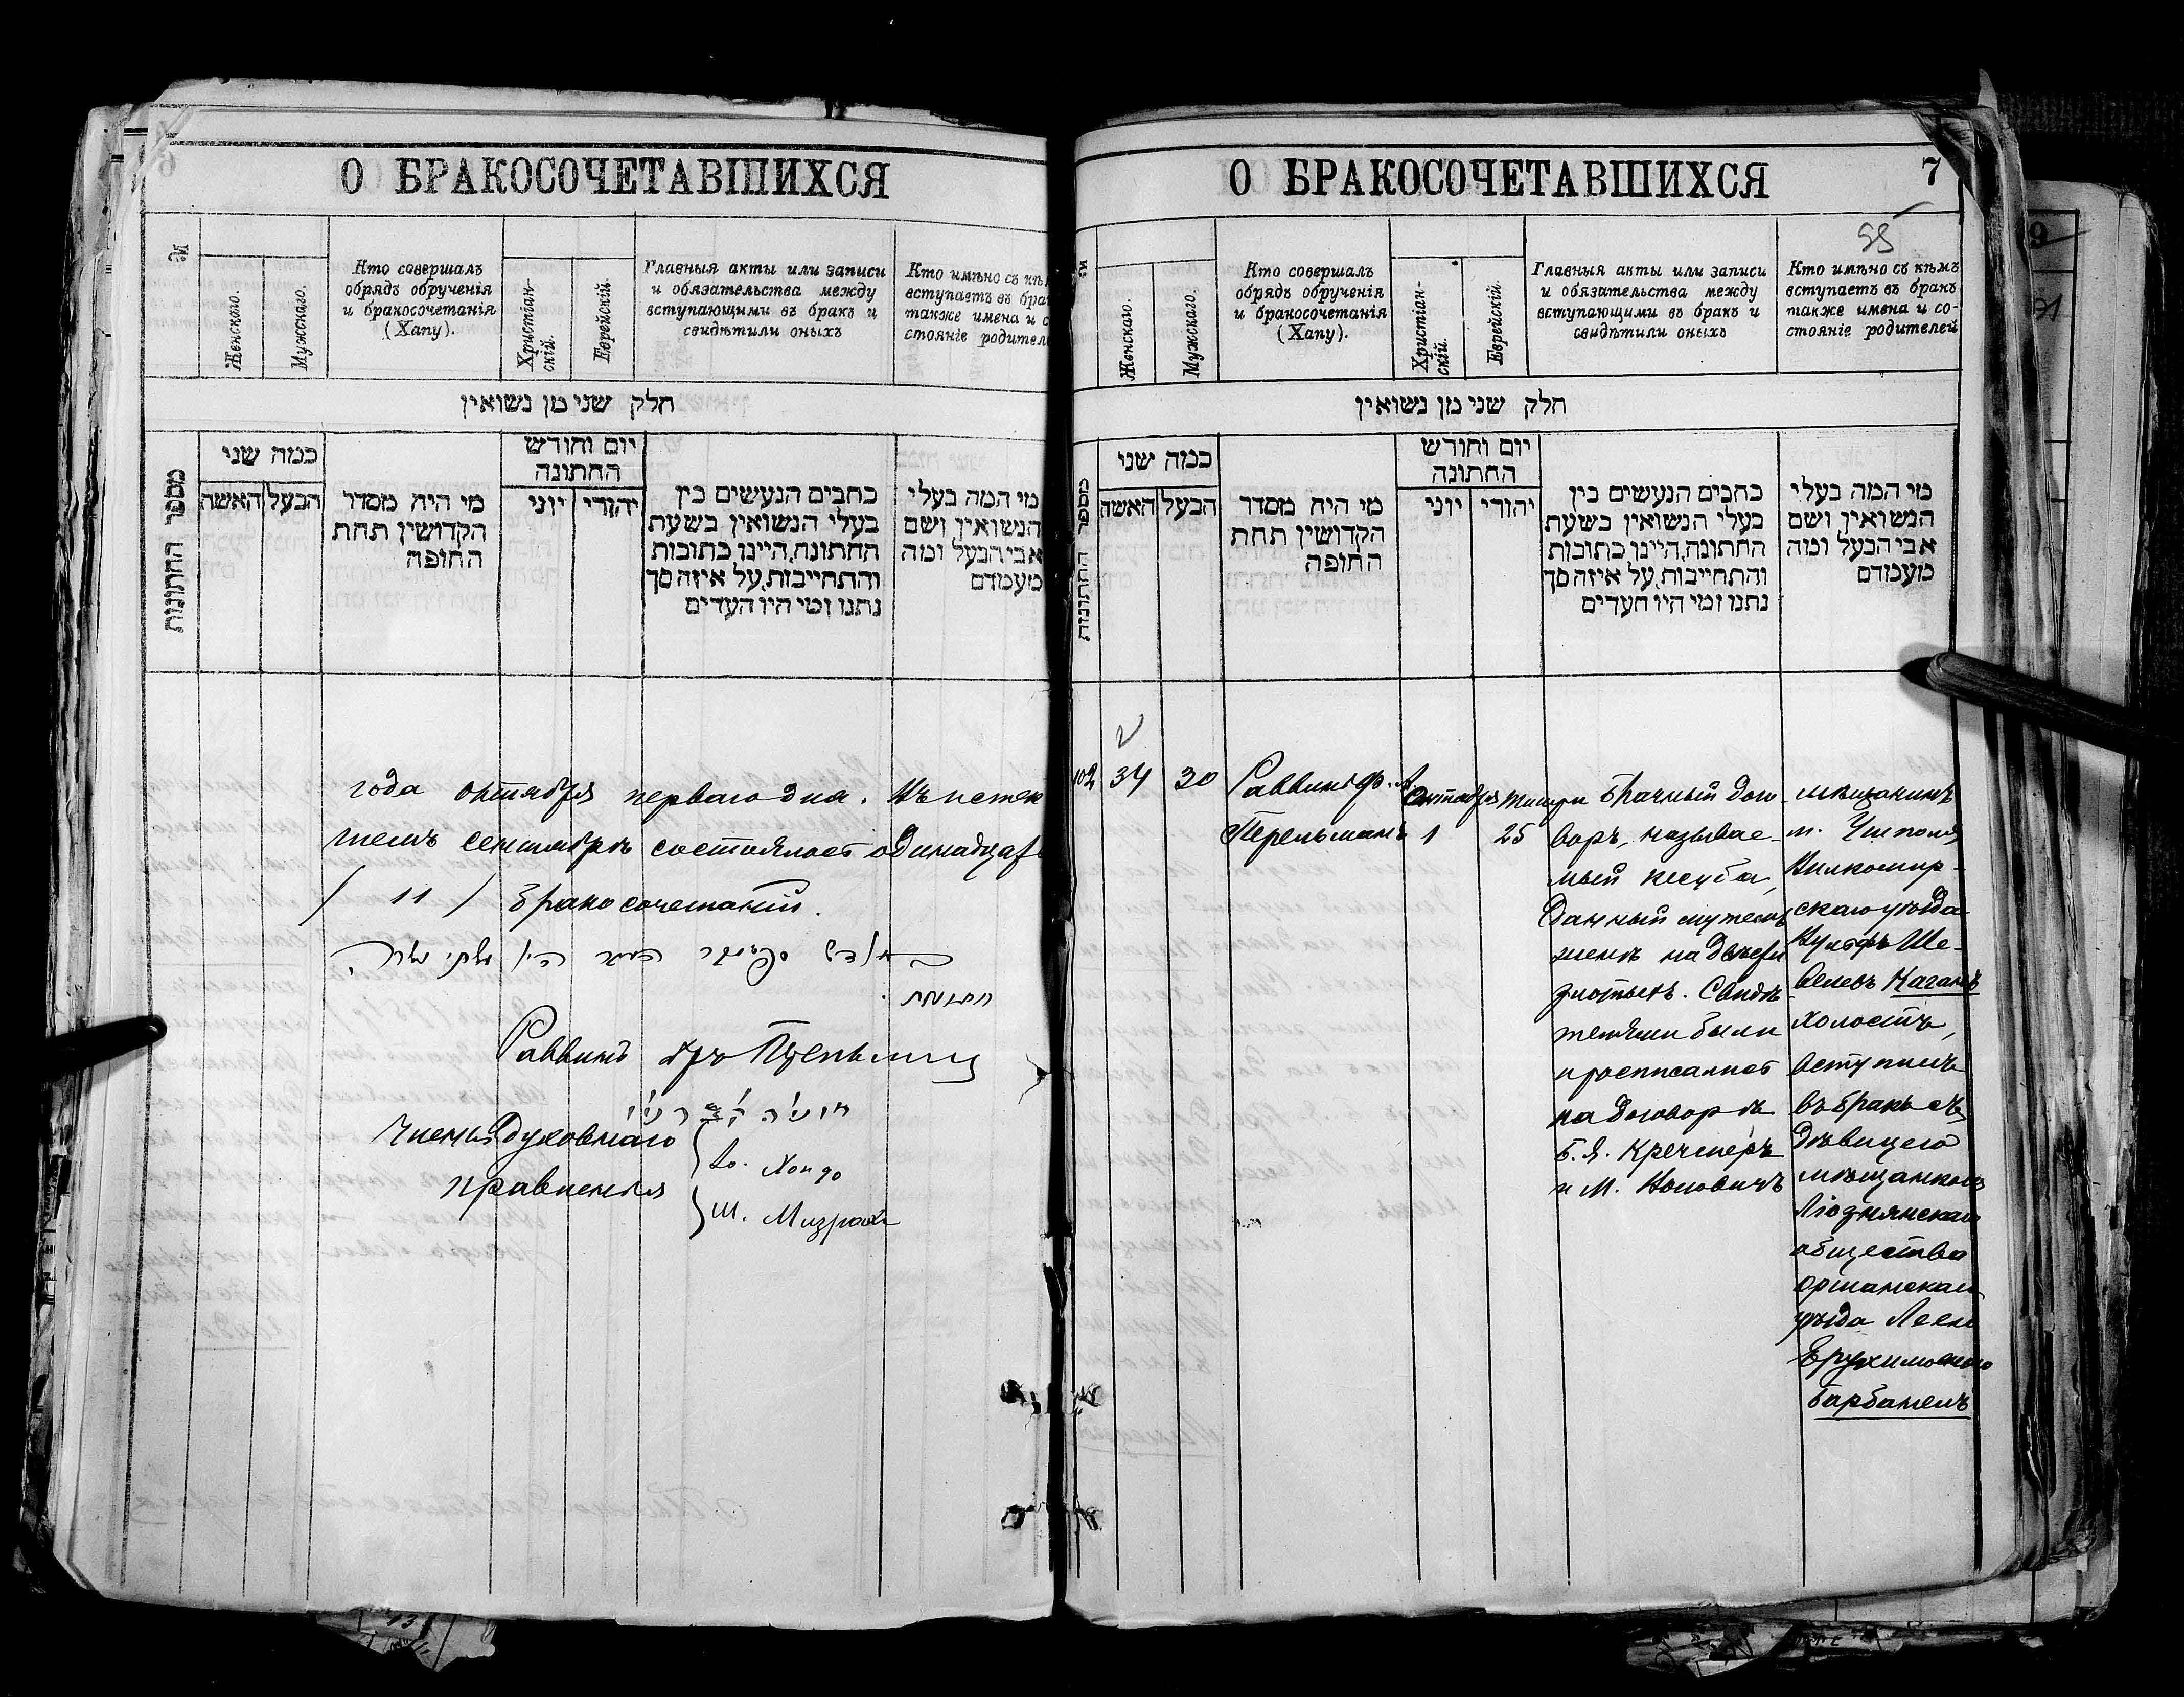 О БРАКОСОЧЕТАВШИХСЯ
№
Женскаго.
Мужскаго.
Кто совершалъ
обрядъ обрученія
и бракосочетанія
(Хапу).
Христіан-
скій.
Еврейскій.
Главныя акты или записи
и обязательства между
вступающими въ бракъ и
свидѣтили оныхъ
Кто имѣно съ кѣ
вступаетъ въ бра
также имена и с
стояніе родител
חלק שני מן נשואין
מספר החתונות
כמה שני
האשה
הבעל
מי היה מסדר
הקדושין תחת
החופה
יום וחודש
החתונה
יוני
יהודי
כתבים הנעשים בין
בעלי הנשואין בשעת
החתונה, היינו כתובות
והתחייבות, על איזה סך
נתנו ומי היו העדים
מי המה בעלי
הנשואין ושם
אבי הבעל ומה
מעמדם
года октября перваго дня. Въ истек
шемъ сентябрѣ состоялось одинадцать
/ 11 / бракосочетаній.
Раввинъ
Члены Духовнаго
правленія
Ш. Мизрахи
О БРАКОСОЧЕТАВШИХСЯ
7
55
№
Женскаго.
Мужскаго.
Кто совершалъ
обрядъ обрученія
и бракосочетанія
(Хапу).
Христіан-
скій.
Еврейскій.
Главныя акты или записи
и обязательства между
вступающими въ бракъ и
свидѣтили оныхъ
Кто имѣно съ кѣмъ
вступаетъ въ бракъ
также имена и со-
стояніе родителей
חלק שני מן נשואין
מספר החתונות
כמה שני
האשה
הבעל
מי היה מסדר
הקדושין תחת
החופה
יום וחודש
החתונה
יוני
יהודי
כתבים הנעשים בין
בעלי הנשואין בשעת
החתונה, היינו כתובות
והתחייבות, על איזה סך
נתנו ומי היו העדים
מי המה בעלי
הנשואין ושם
אבי הבעל ומה
מעמדם
102
34
30
Раввинъ
Перельманъ
Октября
1
Тишри
25
Брачный дого
воръ, называе-
мый кесуба,
данный мужемъ
женѣ на двѣсти
злотыхъ. Свидѣ-
телями были
прописанные
на договорѣ
Б. Я. Кречмеръ
и М. Ноповичъ
мѣщанинъ
м. Ушполя,
Вилкомир-
скаго уѣзда
Вульфъ Ше-
велевъ Каганъ
холостъ,
вступилъ
въ бракъ съ
дѣвицею
мѣщанкою
Ліознянскаго
общества
Оршанскаго
уѣзда Леею
Ерухимовною
Барбанель